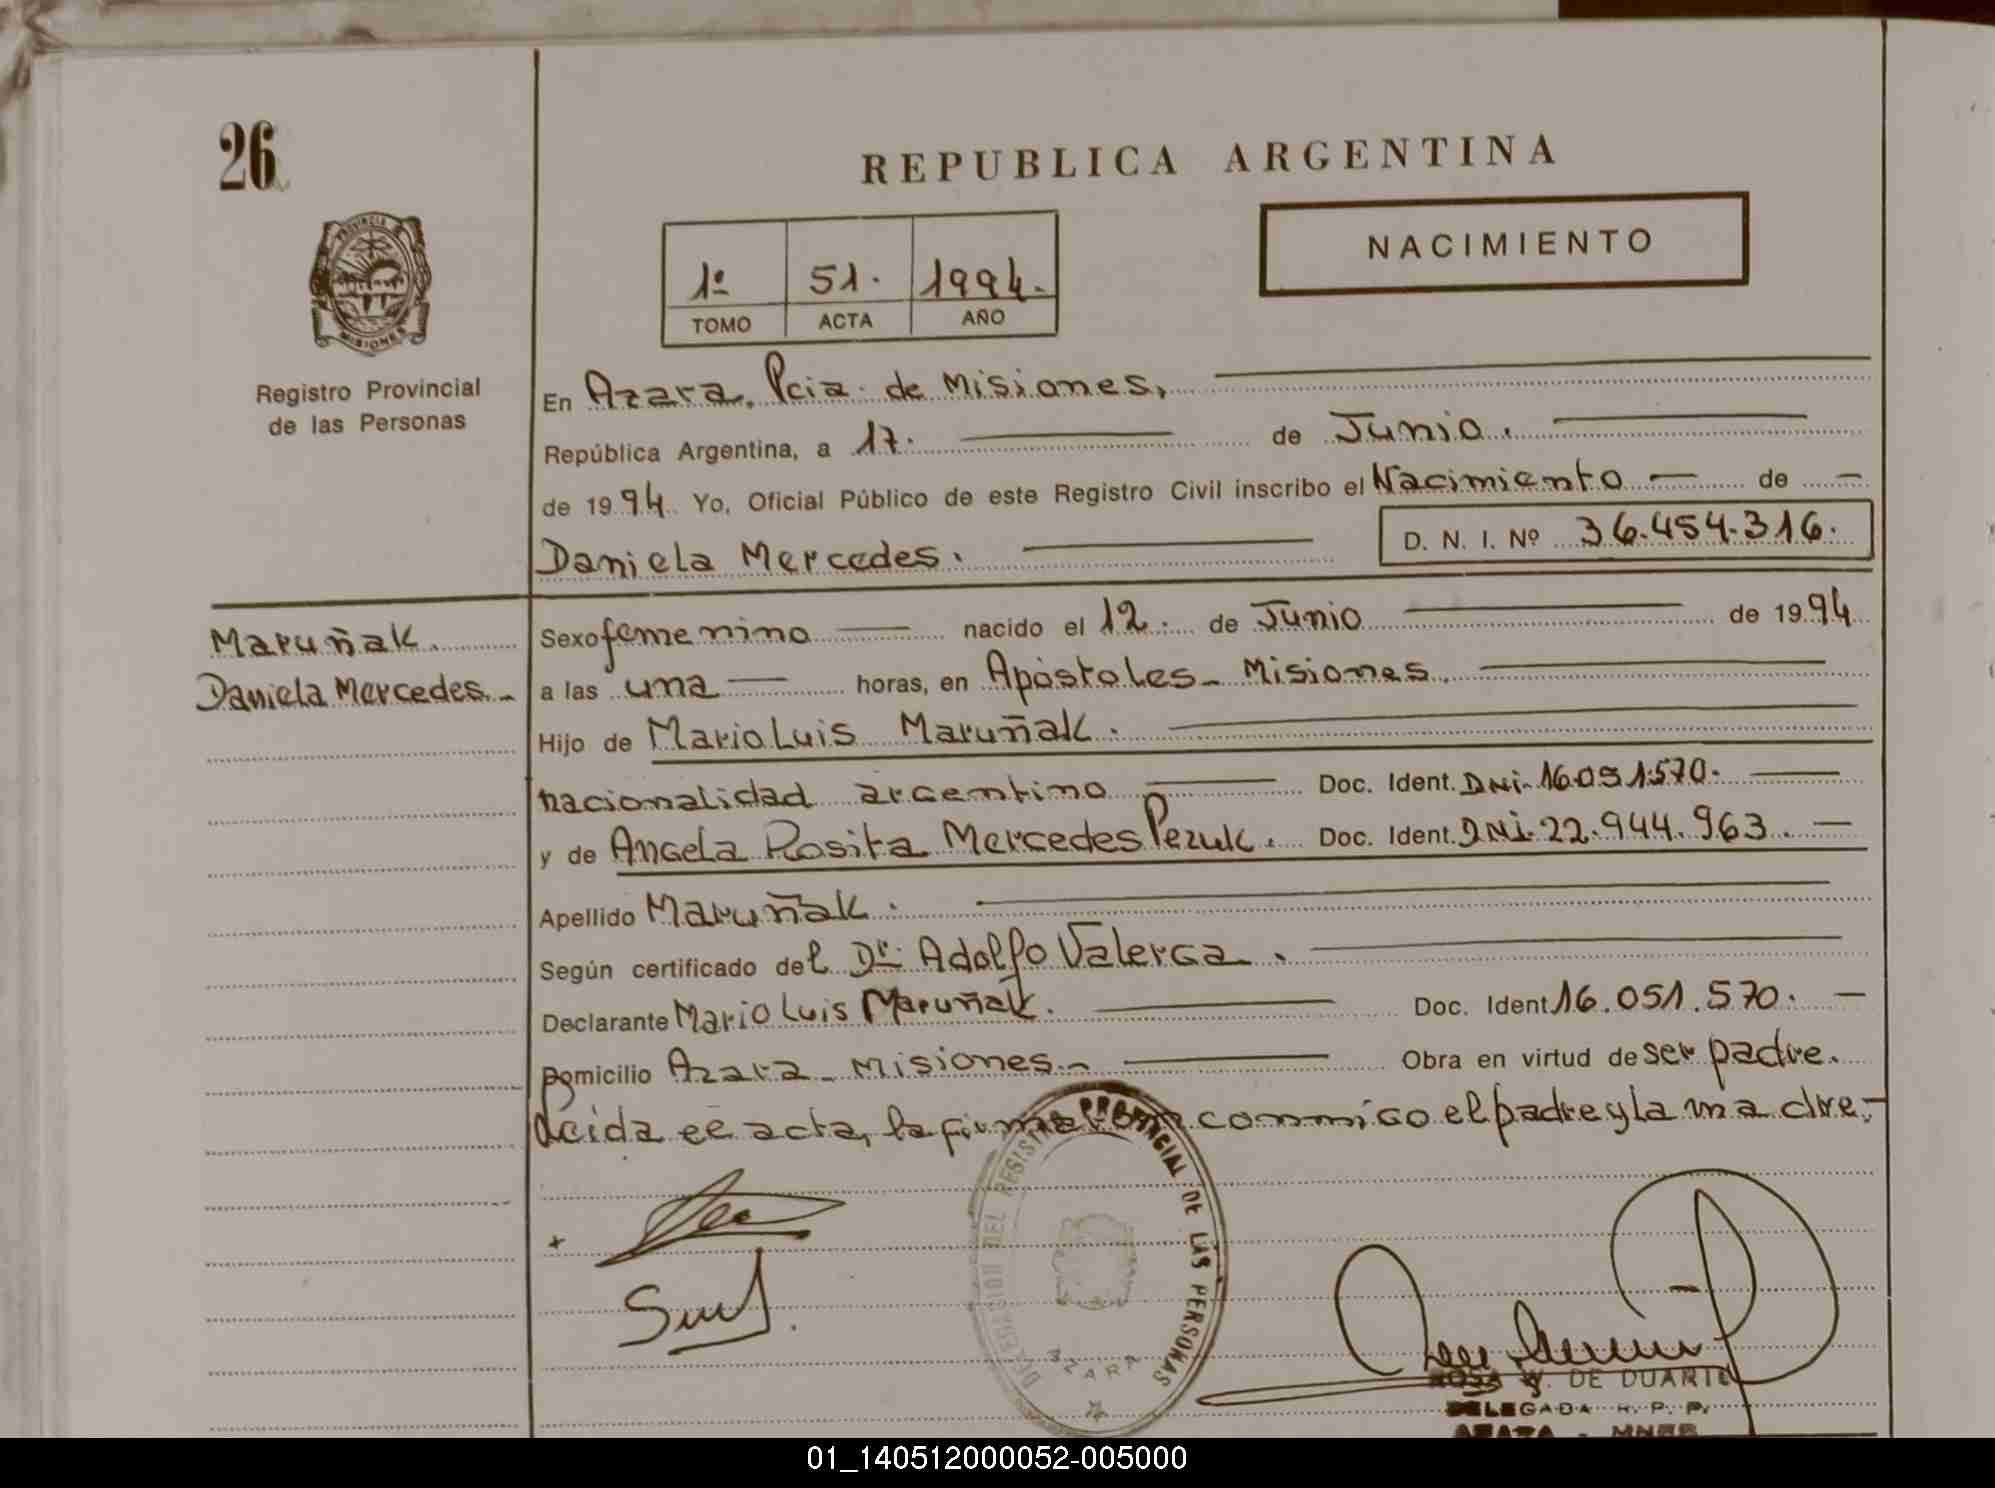 26
REPUBLICA ARGENTINA
PROVINCIA DE
MISIONES
NACIMIENTO
1º 51. 1994.
TOMO ACTA AÑO
Registro Provincial
de las Personas
En Azara, Pcia. de Misiones,
República Argentina, a 17. de Junio.
de 1994. Yo, Oficial Público de este Registro Civil inscribo el Nacimiento — de —
Daniela Mercedes. D. N. I. Nº 36.454.316.
Maruñak
Daniela Mercedes.-
Sexo femenino — nacido el 12. de Junio — de 1994
a las una — horas, en Apóstoles - Misiones.
Hijo de Mario Luis Maruñak.
nacionalidad argentino — Doc. Ident. DNi. 16.051.570. —
y de Angela Rosita Mercedes Pezuk. Doc. Ident. DNi. 22.944.963. —
Apellido Maruñak.
Según certificado del Dr. Adolfo Valerga.
Declarante Mario Luis Maruñak. — Doc. Ident 16.051.570. —
Domicilio Azara - Misiones.- — Obra en virtud de ser padre.
Leida el acta, la firmaron conmigo el padre y la madre.-
DELEGACION DEL REGISTRO PROVINCIAL DE LAS PERSONAS
AZARA
ROSA W. DE DUARTE
DELEGADA R. P. P.
AZARA - MNES
01_140512000052-005000